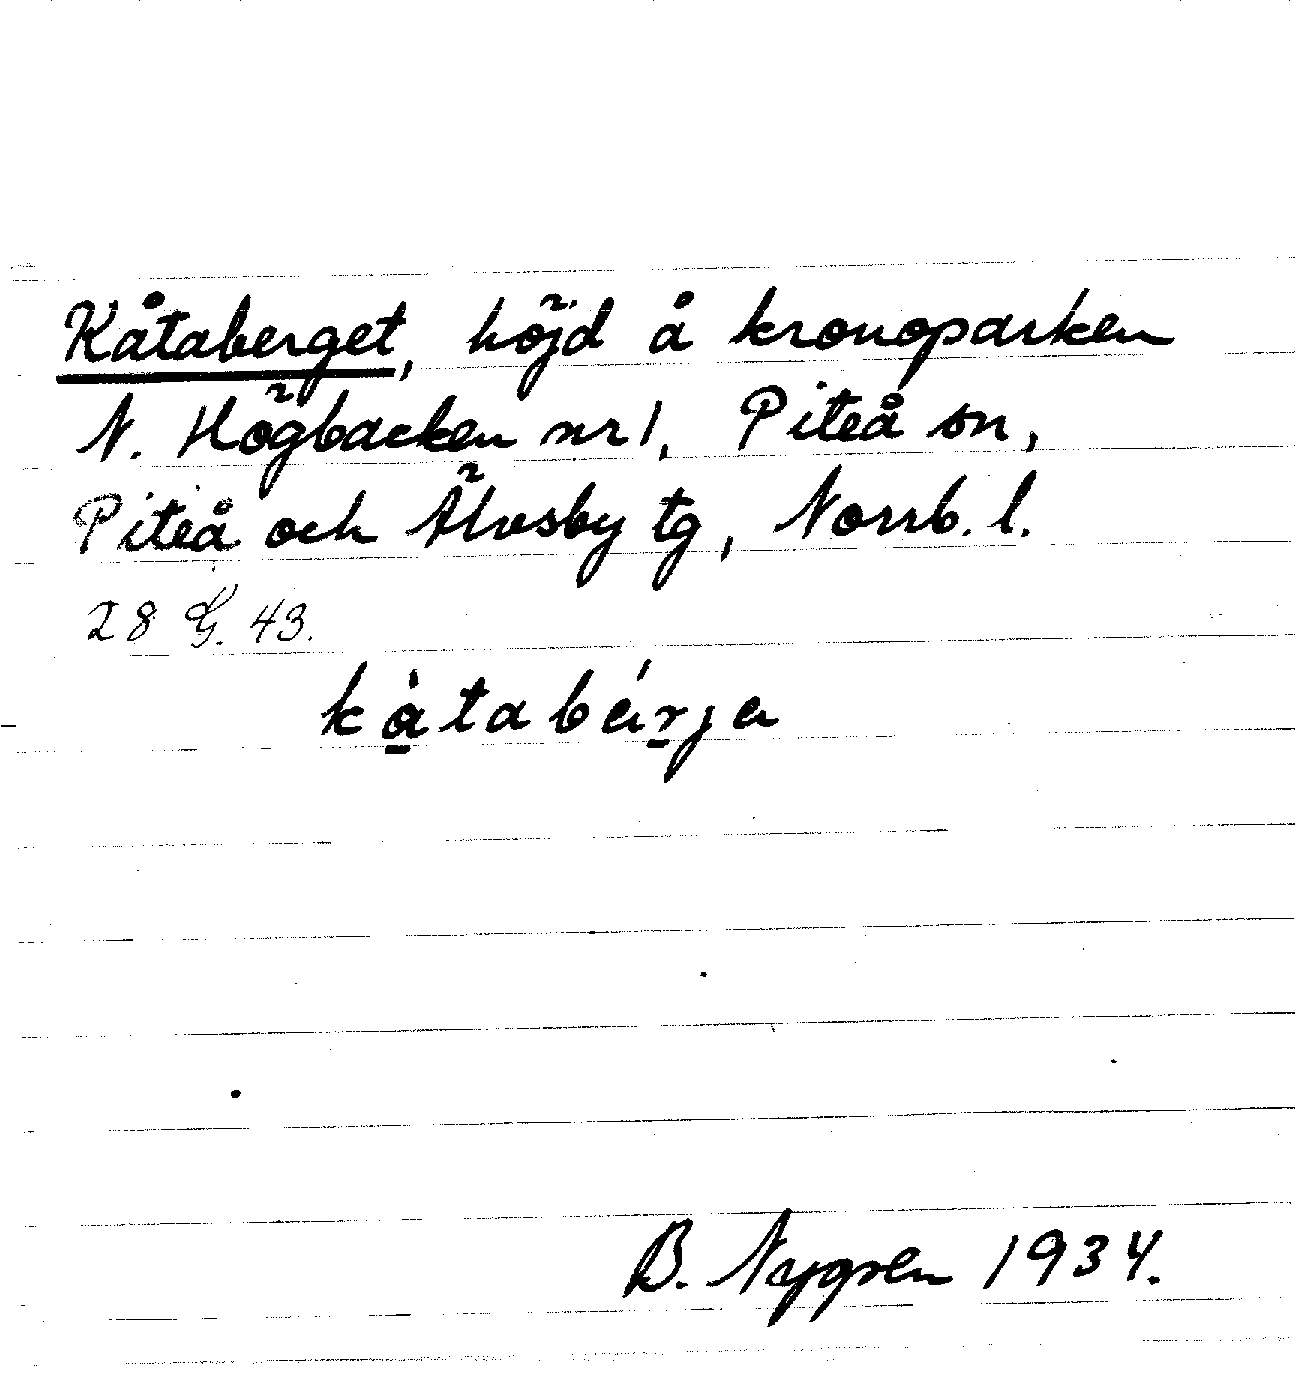 Kåtaberget, höjd å kronoparken
N. Högbacken nr 1, Piteå sn,
Piteå och Älvsby tg, Norrb. l.
28 G. 43.
kå̀tabárja
B. Nygren 1934.